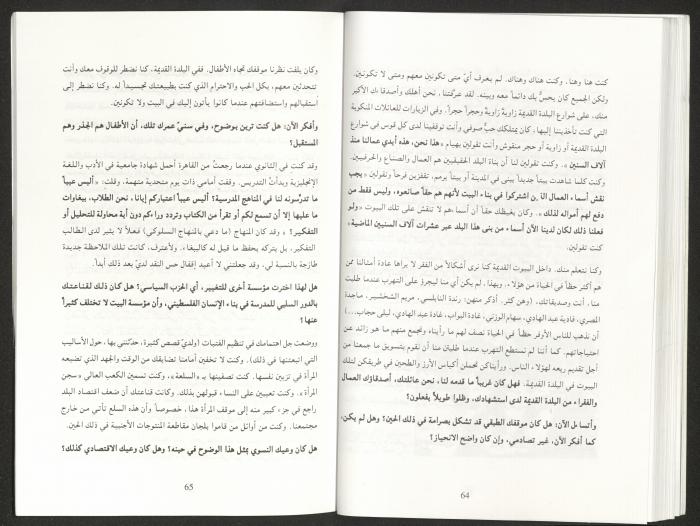 كنت هنا وهنا، وكنت هناك وهناك. لم يعرف أيّ متى تكونين معهم ومتى لا تكونين.
ولكن الجميع كان يحسّ بك دائماً معه وبينه. لقد عرّفتنا، نحن أهلك وأصدقاءك الأكبر
على شوارع البلدة القديمة زاوية زاوية وحجراً حجراً. وفي الزيارات للعائلات المنكوبة
التي كنت تأخذيننا إليها، كان يمتلكك حبّ صوفي وأنت توقفيننا لدى كل قوس في شوارع
البلدة القديمة أو زاوية أو حجر منقوش وأنت تقولين بهيام «هذا نحن، هذه أيدي عمالنا منذ
آلاف السنين». وكنت تقولين لنا أن بناة البلد الحقيقيين هم العمال والصناع والحرفيين.
وكنت كلما شاهدت بيتاً جديداً يبنى في المدينة أو بيتاً يرمم، تقفزين فرحاً وتقولين «يجب
نقش أسماء العمال الذين اشتركوا في بناء البيت لأنهم هم حقاً صانعوه، وليس فقط من
دفع لهم أمواله لذلك». وكان يغيظك حقاً أن أسماءهم لا تنقش على تلك البيوت «ولو
فعلنا ذلك لكان لدينا الآن أسماء من بنى هذا البلد عبر عشرات آلاف السنين الماضية»
كنت تقولين.
وكنا نتعلم منك. داخل البيوت القديمة كنا نرى أشكالاً من الفقر لا يراها عادة أمثالنا ممن
هم أكثر حظاً في الحياة من هؤلاء. وبهذا، لم يكن أي منا ليجرؤ على التهرب عندما طلبت
منا، أنت وصديقاتك، (وهن كثر، أذكر منهن: رندة النابلسي، مريم الشخشير، ماجدة
المصري، فادية عبد الهادي، سهام الوزني، غادة البواب، غادة عبد الهادي، ليلى حجاب....)
أن نذهب للناس الأوفر حظاً في الحياة نصف لهم ما رأيناه ونجمع منهم ما هو زائد عن
احتياجاتهم. كما أننا لم نستطع التهرب عندما طلبتن منا أن نقوم بتسويق ما جمعنا من
أجل تقديم ريعه لهؤلاء الناس. ورأيناكن تحملن أكياس الأرز والطحين في طريقكن لتلك
البيوت في البلدة القديمة. فهل كان غريباً ما قدمه لنا، نحن عائلتك، أصدقاؤك العمال
والفقراء من البلدة القديمة لدى استشهادك، وظلوا طويلاً يفعلون؟
وأتساءل الآن: هل كان موقفك الطبقي قد تشكل بصرامة في ذلك الحين؟ وهل لم يكن،
كما أفكر الآن، غير تصادمي، وإن كان واضح الانحياز؟
64
وكان يلفت نظرنا موقفك تجاه الأطفال. ففي البلدة القديمة، كنا نضطر للوقوف معك وأنت
تتحدثين معهم، بكل الحب والاحترام الذي كنت بطبيعتك تجسيداً له. وكنا نضطر إلى
استقبالهم واستضافتهم عندما كانوا يأتون إليك في البيت ولا تكونين.
وأفكر الآن: هل كنت ترين بوضوح، وفي سنيّ عمرك تلك، أن الأطفال هم الجذر وهم
المستقبل؟
وقد كنت في الثانوي عندما رجعتُ من القاهرة أحمل شهادة جامعية في الأدب واللغة
الإنجليزية وبدأتُ التدريس. وقفت أمامي ذات يوم متحدية متهمة، وقلت: «أليس عيباً
ما تدرّسونه لنا في المناهج المدرسية؟ أليس عيباً اعتباركم إيانا، نحن الطلاب، ببغاوات
ما عليها إلا أن تسمع لكم أو تقرأ من الكتاب وتردد وراءكم دون أية محاولة للتحليل أو
التفكير؟» وقد كان المنهاج (ما دعي بالمنهاج السلوكي) فعلاً لا يثير لدى الطالب
التفكير، بل يتركه يحفظ ما قيل له كالببغاء. ولأعترف، كانت تلك الملاحظة جديدة
طازجة بالنسبة لي، وقد جعلتني لا أعيد إقفال حس النقد لديّ بعد ذلك أبداً.
هل لهذا اخترت مؤسسة أخرى للتغيير، أي الحزب السياسي؟ هل كان ذلك لقناعتك
بالدور السلبي للمدرسة في بناء الإنسان الفلسطيني، وأن مؤسسة البيت لا تختلف كثيراً
عنها؟
ووضعت جل اهتمامك في تنظيم الفتيات (ولديّ قصص كثيرة، حدّثنني بها، حول الأساليب
التي اتبعتنها في ذلك). وكنت لا تخفين أمامنا تضايقك من الوقت والجهد الذي تضيعه
المرأة في تزيين نفسها. كنت تصفينها بـ «السلعة»، وكنت تسمين الكعب العالي «سجن
المرأة»، وكنت تعيبين على النساء قبولهن بذلك. وكانت قناعتك أن ضعف اقتصاد البلد
راجع في جزء كبير منه إلى موقف المرأة هذا، خصوصاً وأن هذه السلع تأتي من خارج
مجتمعنا. وكنت من أوائل من قاموا بلجان مقاطعة المنتوجات الأجنبية في ذلك الحين.
هل كان وعيك النسوي بمثل هذا الوضوح في حينه؟ وهل كان وعيك الاقتصادي كذلك؟
65